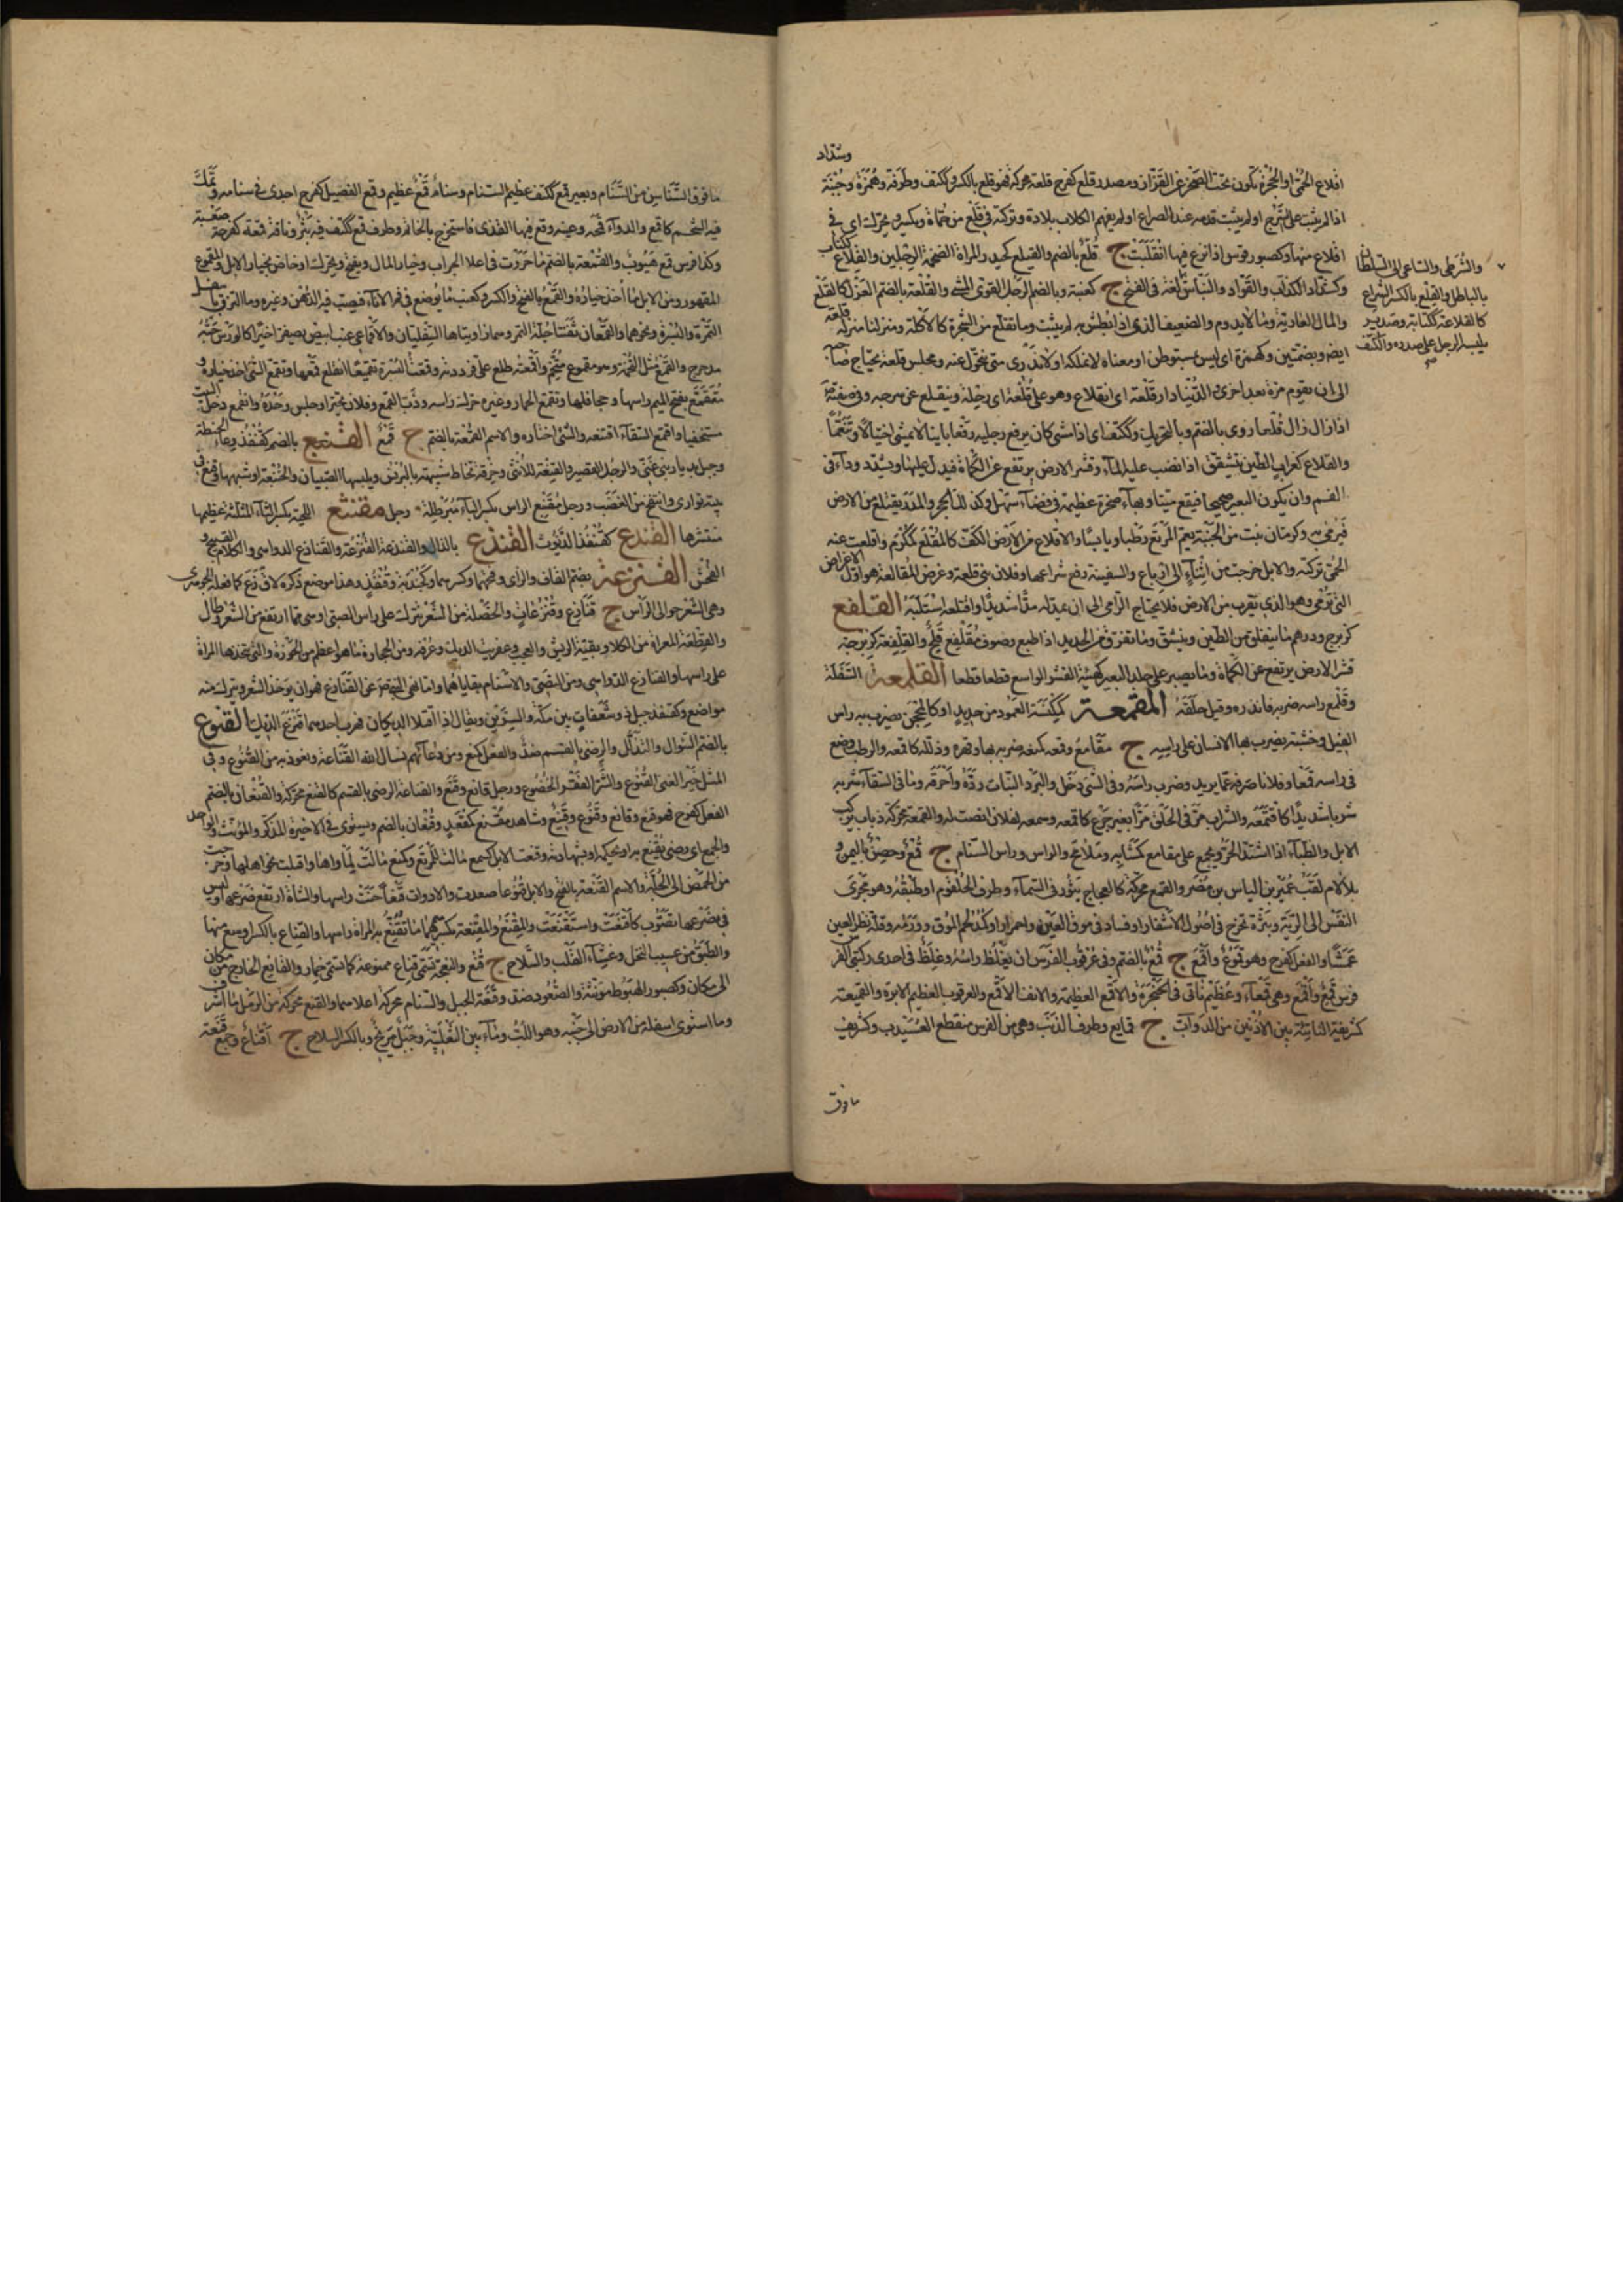 وشداد
اقلاع الحمى او الحجرة تكون تحت الصخر عن القزاز ومصدر قلع كفرح قلعة محركة فهو قلع بالكسر وككتف وطرفة وهمزة وجبنة
اذا لم يثبت على السرج او لم يثبت قدمه عند الصراع او لم يفهم الكلام بلادة وتركته في قلع من حماه ويكسر ويحرك اى في
اقلاع منها وكصبور قوس اذا نزع فيها انقلبت ج قلع بالضم والقيلع كحيدر المراة الضخمة الرجلين والقلاع ككتاب
وكشداد الكذاب والقواد والنباش لغة في الفتح ج كعنبة وبالضم الرجل القوى المشى والقلعة بالضم العزل كالقلع
والمال العارية وما لا يدوم والضعيف الذى اذا بطش به لم يثبت وما تقلع من الشجرة كالاكلة ومنزلنا منزل قلعة
ايضم وبضمتين وكهمزة اى ليس بمستوطن او معناه لا نملكه او لا ندرى متى نتحول عنه ومجلس قلعة يحتاج صاحبه
الى ان يقوم مرة بعد اخرى والدنيا دار قلعة اى انقلاع وهو على قلعة اى رحلة وينقلع عن سرجه وفى صفته صم
اذا زال زال قلعا روى بالضم وبالتحريك وككتف اى اذا مشى كان يرفع رجليه رفعا باينا لا يمشى اختيالا وتنعما
والقلاع كغراب الطين يتشقق اذا نضب عليه الماء وقشر الارض يرتفع عن الكماة فيدل عليها ويشدد وداء في
الفم وان يكون البعير صحيحا فيقع ميتا وبهاء صخرة عظيمة في فضاء سهل وكذلك الحجر والمدر يقتلع من الارض
فيرمى به وكرمان نبت من الجنبة نعم المرتع رطبا ويابسا والاقلاع عن الامر الكف كالمقلع ككرم واقلعت عنه
الحمى تركته والابل خرجت من اثناء الى ارباع والسفينة رفع شراعها وفلان بنى قلعة وغرض المقالعة هو اول الاغراض
التى ترمى وهو الذى يقرب من الارض فلا يحتاج الرامى الى ان يمد يده مدا شديدا واقتلعه استلبه القلفع
كزبرج ودرهم ما يتفلق من الطين ويتشقق وما تفرق من الحديد اذا طبع وصوف مقلفع قلح والقلفعة كزبرجة
قشر الارض يرتفع عن الكماة وما يصير على جلد البعير كهيئة القشر الواسع قطعا قطعا القلمعة السفلة
وقلمع راسه ضربه فاندره وقيل حلقه المقمعة كمكنسة العمود من حديد او كالمحجن يضرب به راس
الفيل وخشبة يضرب بها الانسان على راسه ج مقامع وقمعه كمنعه ضربه بها وقهره وذلله كاقمعه والوطب وضع
في راسه قمعا وفلانا صرفه عما يريد وضرب راسه وفى الشى دخل والبرد النبات رده واحرقه وما في السقاء شربه
شربا شديدا كاقتمعه والشراب مر في الحلق مرا بغير جرع كاقمعه وسمعه لفلان انصت له والقمعة محركة ذباب يركب
الابل والظباء اذا اشتد الحر ويجمع على مقامع كمشابه وملامح والراس وراس السنام ج قمع وحصن باليمن و
بلا لام لقب عمير بن الياس بن مضر والقمع محركة كالعجاج يثور في السماء وطرف الحلقوم او طبقه وهو مجرى
النفس الى الرية وبثرة تخرج في اصول الاشفار او فساد في موق العين واحمرار او كمد لحم الموق وورمه وقلة نظر العين
عمشا والفعل كفرح وهو قموع واقمع ج قمع بالضم وفى عرقوب الفرس ان يغلظ راسه وغلظ في احدى ركبتى الفرس
فرس قمع واقمع وهى قمعاء وعظيم ناتى في الحنجرة والاقمع العظيمه والانف الاقمع والعرقوب العظيم الابرة والقميعة
كشريفة الناتئة بين الاذنين من الدواب ج قمايع وطرف الذنب وهى من الفرس منقطع العسيب وكشريف
ما فوق
والشرطى والساعى الى السلطان
بالباطل والقلع بالكسر الشراع
كالقلاعة ككتابة وصدير
يلبسه الرجل على صدره والكنف
ما فوق السناسن من السنام وبعير قمع ككتف عظيم السنام وسنام قمع عظيم وقمع الفصيل كفرح احدى في سنامه وتمك
فيه الشحم كاقمع والدواء قمحه وعينه وقع فيها القذى فاستخرج بالخاتم وطرف قمع ككتف فيه بثر وناقة قمعة كفرحة ضبعة
وكذا فرس قمع هيوب والقمعة بالضم ما صررت في اعلا الجراب وخيار المال ويفتح ويحرك او خاص بخيار الابل والمقموع
المقهور ومن الابل ما اخذ خياره والقمع بالفتح والكسر وكعنب ما يوضع في فم الاناء فيصب فيه الدهن وغيره وما التزق باسفل
التمرة والبسرة ونحوهما والقمعان ثفنتا جلة التمر وهما زاويتاها السفليان والاقماعى عنب ابيض يصفر اخيرا كالورس حبه
مدحرج والقمع مثل التخمة وهو مقموع متخم واقمعته طلع على فرددته وقمعت البسرة تقميعا انقلع قمعها وتقمع الشى اخذ خياره و
متقمع بفتح الميم راسها وجحافلها وتقمع الحمار وغيره حرك راسه وذب القمع وفلان تحير او جلس وحده وانقمع دخل البيت
مستخفيا واقتمع السقاء اقتبعه والشى اختاره والاسم القمعة بالضم ج قمع القنبع بالضم كقنفذ وعاء الحنطة
وجبل بديار بنى غنى والرجل القصير والقنبعة للانثى وخرقة تخاط شبيهة بالبرنس ويلبسها الصبيان والخنبعة او شبهها وقنبع في
بيته توارى وانتفخ من الغضب ورجل مقنبع الراس بكسر الباء مبرطله رجل مقنثع اللحية بكسر الثاء المثلثة عظيمها
منتشرها القندع كقنفذ الديوث القنذع بالذال والقنذعة القنزعة والقناذع الدواهى والكلام القبيح و
الفحش القنزعة بضم القاف والزاى وفتحهما وكسرهما وكجندبة وقنفذ وهذا موضع ذكره لا ق ز ع كما فعله الجوهرى
وهى الشعر حوالى الراس ج قنازع وقنزعات والخصلة من الشعر تترك على راس الصبى او هى ما ارتفع من الشعر وطال
والقطعة المعراة من الكلا وبقية الريش والعجب وعفرية الديك وعرفه ومن الحجارة ما هو اعظم من الجوزة والتى تتخذها المراة
على راسها والقنازع الدواهى ومن النصى والاسنام بقاياهما واما نهى النبى صم عن القنازع فهو ان يوخذ الشعر ويترك منه
مواضع وكقنفذ جبل ذو شعفات بين مكة والسرين ويقال اذا اقتتلا الديكان فهرب احدهما قنزع الديك القنوع
بالضم السوال والتذلل والرضى بالقسم ضد والفعل كمنع ومن دعائهم نسال الله القناعة ونعوذ به من القنوع وفى
المثل خير الغنى القنوع وشر الفقر الخضوع ورجل قانع وقنع والقناعة الرضى بالقسم كالقنع محركة والقنعان بالضم
الفعل كفرح فهو قنع وقانع وقنوع وقنيع وشاهد مقنع كمقعد وقنعان بالضم ويستوى في الاخيرة المذكر والمونث والواحد
والجمع اى رضى يقنع به او بحكمه او بشهادته وقنعت الابل كسمع مالت للمرتع وكمنع مالت لماواها واقبلت نحو اهلها وخرجت
من الحمض الى الخلة والاسم القنعة بالفتح والابل قنوعا صعدت والاداوة قنعا خنث راسها والشاة ارتفع ضرعها وليس
في ضرعها تصوب كاقنعت واستقنعت والمقنع والمقنعة بكسر ميمهما ما تقنع به المراة راسها والقناع بالكسر اوسع منها
والطبق من عسيب النخل وغشاء القلب والسلاح ج قنع والنعجة تسمى قناع ممنوعة كما تسمى خمار والقانع الخارج من مكان
الى مكان وكصبور الهبوط مونثة والصعود ضد وقنعة الجبل والسنام محركة اعلاهما والقنع محركة من الرمل ما اشرف
وما استوى اسفله من الارض الى جنبه وهو اللبب وماء بين الثعلبية وحبل مربخ وبالكسر السلاح ج اقناع وجمع قنعة